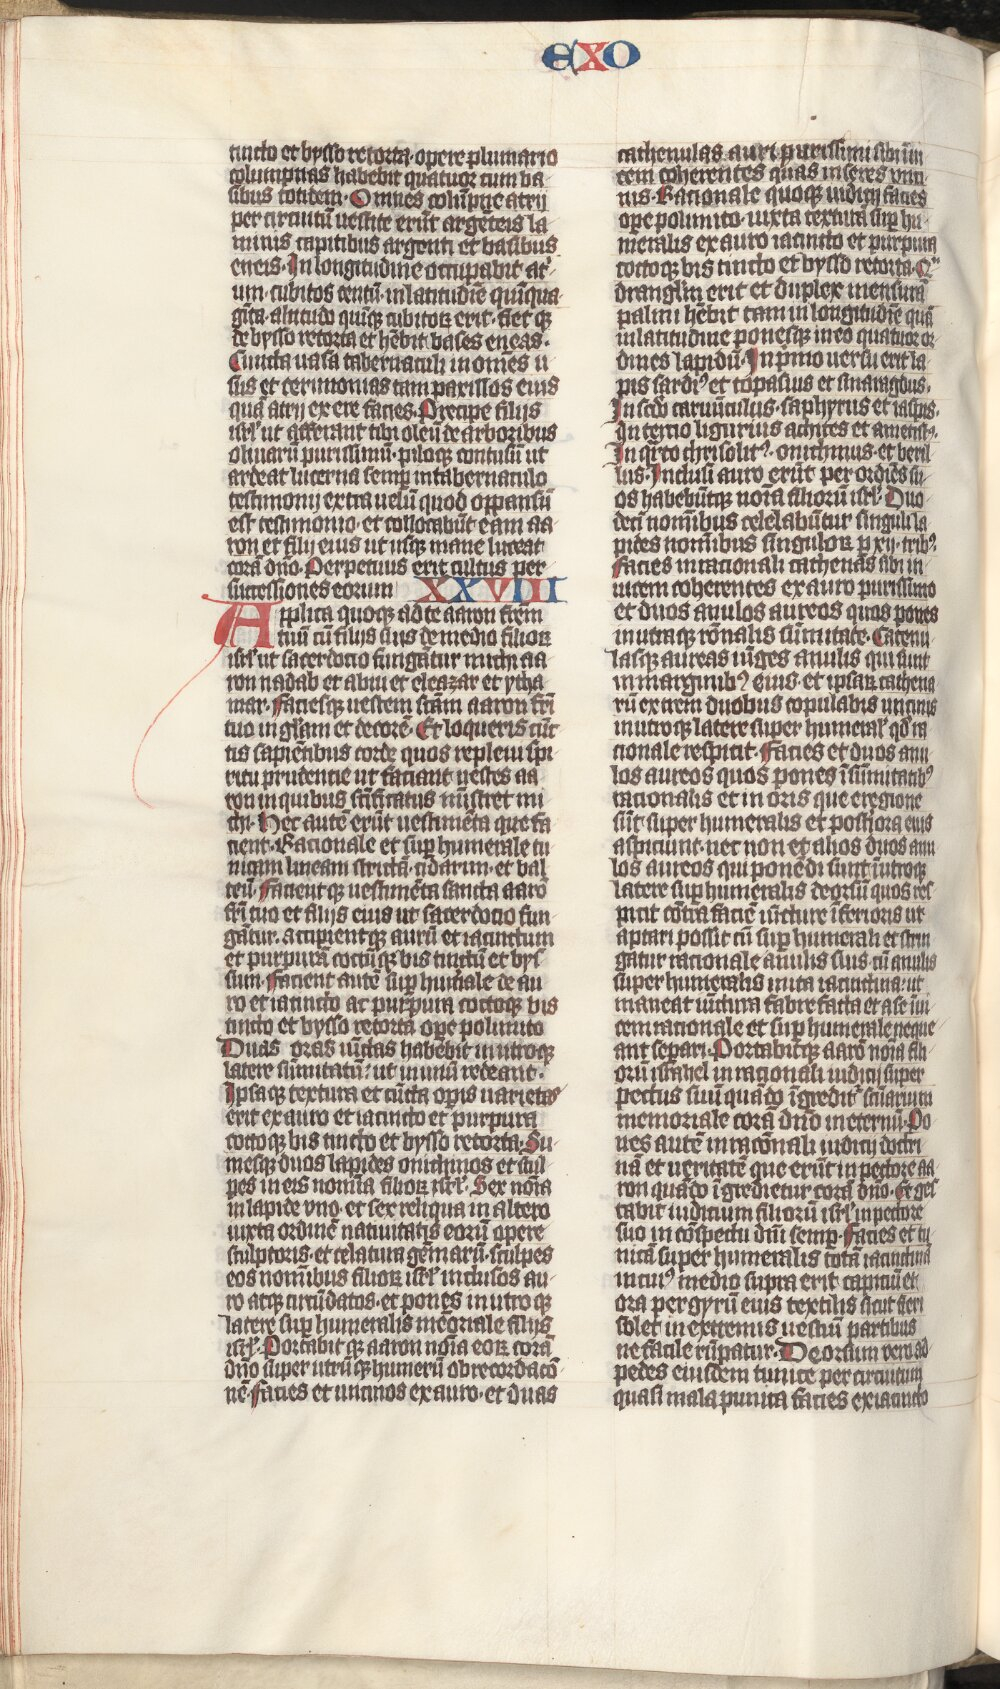 EXO
tincto et bysso retorta. opere plumario
columpnas habebit quatuor cum ba
sibus totidem. Omnes colūpne atrij
per circuitū uestite erūt argēteis la
minis capitibus argenti et basibus
eneis. In longitudine occupabit at͛
um cubitos centū. in latitudīe quīqua
gīta. altitudo quīqꝫ cubitoꝝ erit. fiet qꝫ
de bysso retorta et hēbit bases eneas.
Cuncta uasa tabernaculi in omēs u
sus et cerimonias tam paxillos eius
quā atrij ex ere facies. Precipe filijs
isrl̓ ut afferant tibi oleū de arboribus
oliuarū purissimū. piloqꝫ contusū ut
ardeat lucerna semp̄ in tabernaculo
testimonij extra uelū quod oppansū
est testimonio. et collocabūt eam aa
ron et filij eius ut usqꝫ mane luceat
corā dn̄o. Perpetuus erit cultus per
successiones eorum XXVIII
Applica quoqꝫ ad te aaron frēm
tuū cū filijs suis de medio filioꝝ
isrl̓ ut sacerdocio fungātur michi aa
ron nadab et abiu et eleazar et ytha
mar. Faciesqꝫ uestem scām aaron fr̄i
tuo in gl̄am et decorē. Et loqueris cūc
tis sapiētibus corde quos repleui spi
ritu prudentie ut faciant uestes aa
ron in quibus sc̄ificatus mīstret mi
chi. Hec autē erūt uestimēta que fa
cient. Racionale et sup̄ humerale tu
nicam lineam strictā. cidarum. et bal
teū. Facient qꝫ uestimēta sancta aarō
fr̄i tuo et filijs eius ut sacerdocio fun
gātur. accipientqꝫ aurū et iacinctum
et purpurā coccūqꝫ bis tinctū et bys
sum. Facient autē sup̄ hum̄ale de au
ro et iacincto ac purpura coccoqꝫ bis
tincto et bysso retorta opē polimito
Duas oras iūctas habebit in utroqꝫ
latere sūmitatū. ut in unū redeant.
Ipsaqꝫ textura et cūcta opis uarietas
erit ex auro et iacincto et purpura
coccoqꝫ bis tincto et bysso retorta. Su
mesqꝫ duos lapides onichinos et scul
pes in eis nomīa filioꝝ isrl̓. Sex noīa
in lapide vno. et sex reliqua in altero
iuxta ordinē natiuitatis eorū opere
sculptoris. et celatura gēmarū. sculpes
eos nomībus filioꝝ isrl̓ inclusos au
ro atqꝫ circūdatos. et pones in utroqꝫ
latere sup̄ humeralis mēoriale filijs
isrl̓. Portabit qꝫ aaron noīa eoꝝ corā
dn̄o super utrūqꝫ humerū ob recordacō
nē. Facies et uncinos ex auro. et duas
cathenulas auri purissimi sibi īui
cem coherentes quas inseres vnci
nis. Racionale quoqꝫ iudicij facies
opē polimito. iuxta texturā sup̄ hu
meralis ex auro iacincto et purpura
coccoqꝫ bis tincto et bysso retorta. Qͣ
dranglm̄ erit et duplex mensurā
palmi hēbit tam in longitudīe quā
in latitudine ponesqꝫ in eo quatuor or
dines lapidū. In pmo uersu erit la
pis sardiꝰ et topasius et smaragdus.
In scd̄o caruūculus. saphyrus et iaspis.
In tercio ligurius achites et ametistꝰ.
In qrto chrisolitꝰ. onichinus et beril
lus. Inclusi auro erūt per ordīes su
os habebūtqꝫ noīa filiorū isrl̓. Duo
decī nomībus celelabūtur singuli la
pides nomībus singuloꝝ p xij. tribꝰ.
Facies in racionali cathenas sibi in
uicem coherentes ex auro purissimo
et duos anulos aureos quos pones
in utraqꝫ rōnalis sūmitate. Catenu
lasqꝫ aureas iūges anulis qui sunt
in marginibꝰ eius. et ipsaꝝ cathena
rū extrem duobus copulabis uncinis
in utroqꝫ latere super humeral̓ qd̄ ra
cionale respicit. Facies et duos anu
los aureos quos pones ī sūmitatibꝰ
racionalis et in oris que e regione
sūt super humeralis et post̓iora eius
aspiciunt. nec non et alios duos anu
los aureos qui ponēdi sunt ī utroqꝫ
latere sup̄ humeralis deorsū quos res
picit cōtra faciē iūcture īferioris ut
aptari possit cū sup̄ humerali et strin
gatur racionale anulis suis cū anulis
super humeralis uitta iacinctina. ut
maneat iūctura fabre facta et a se īui
cem racionale et sup̄ humerale neque
ant separi. Portabitqꝫ aarō noīa fili
orū israhel in racionali iudicij super
pectus suū quādo īgreditᷣ sc̄uarium
memoriale corā dn̄o in eternū. Po
nes autē in racōnali iudicij doctri
nā et ueritatē que erūt in pectore aa
ron quādo īgredietur corā dn̄o. Et ges
tabit iudicium filiorū isrl̓ in pectore
suo in cōspectu dn̄i semp̄. Facies et tu
nicā super humeralis totā iacinctinā
in cuiꝰ medio supra erit capiciū et
ora per gyrū eius textilis sicut fieri
solet in extremis uestiū partibus
ne facile rūpatur. Deorsum vero ad
pedes eiusdem tunice per circuitum
quasi mala punica facies ex iacincto